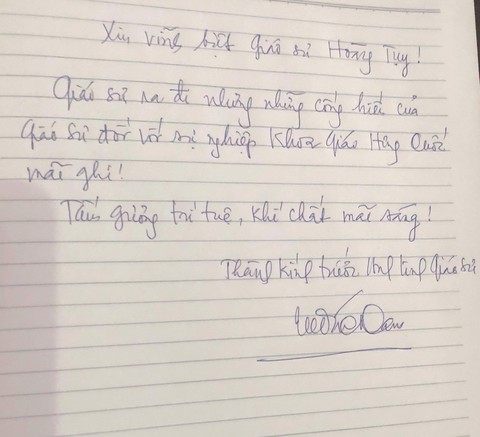 Xin vĩnh biệt Giáo sư Hoàng Tụy!
Giáo sư ra đi nhưng những cống hiến của
Giáo sư đối với sự nghiệp Khoa Giáo
mãi ghi!
Tấm gương trí tuệ, khí chất mãi sáng!
Thành kính trước linh Giáo sư